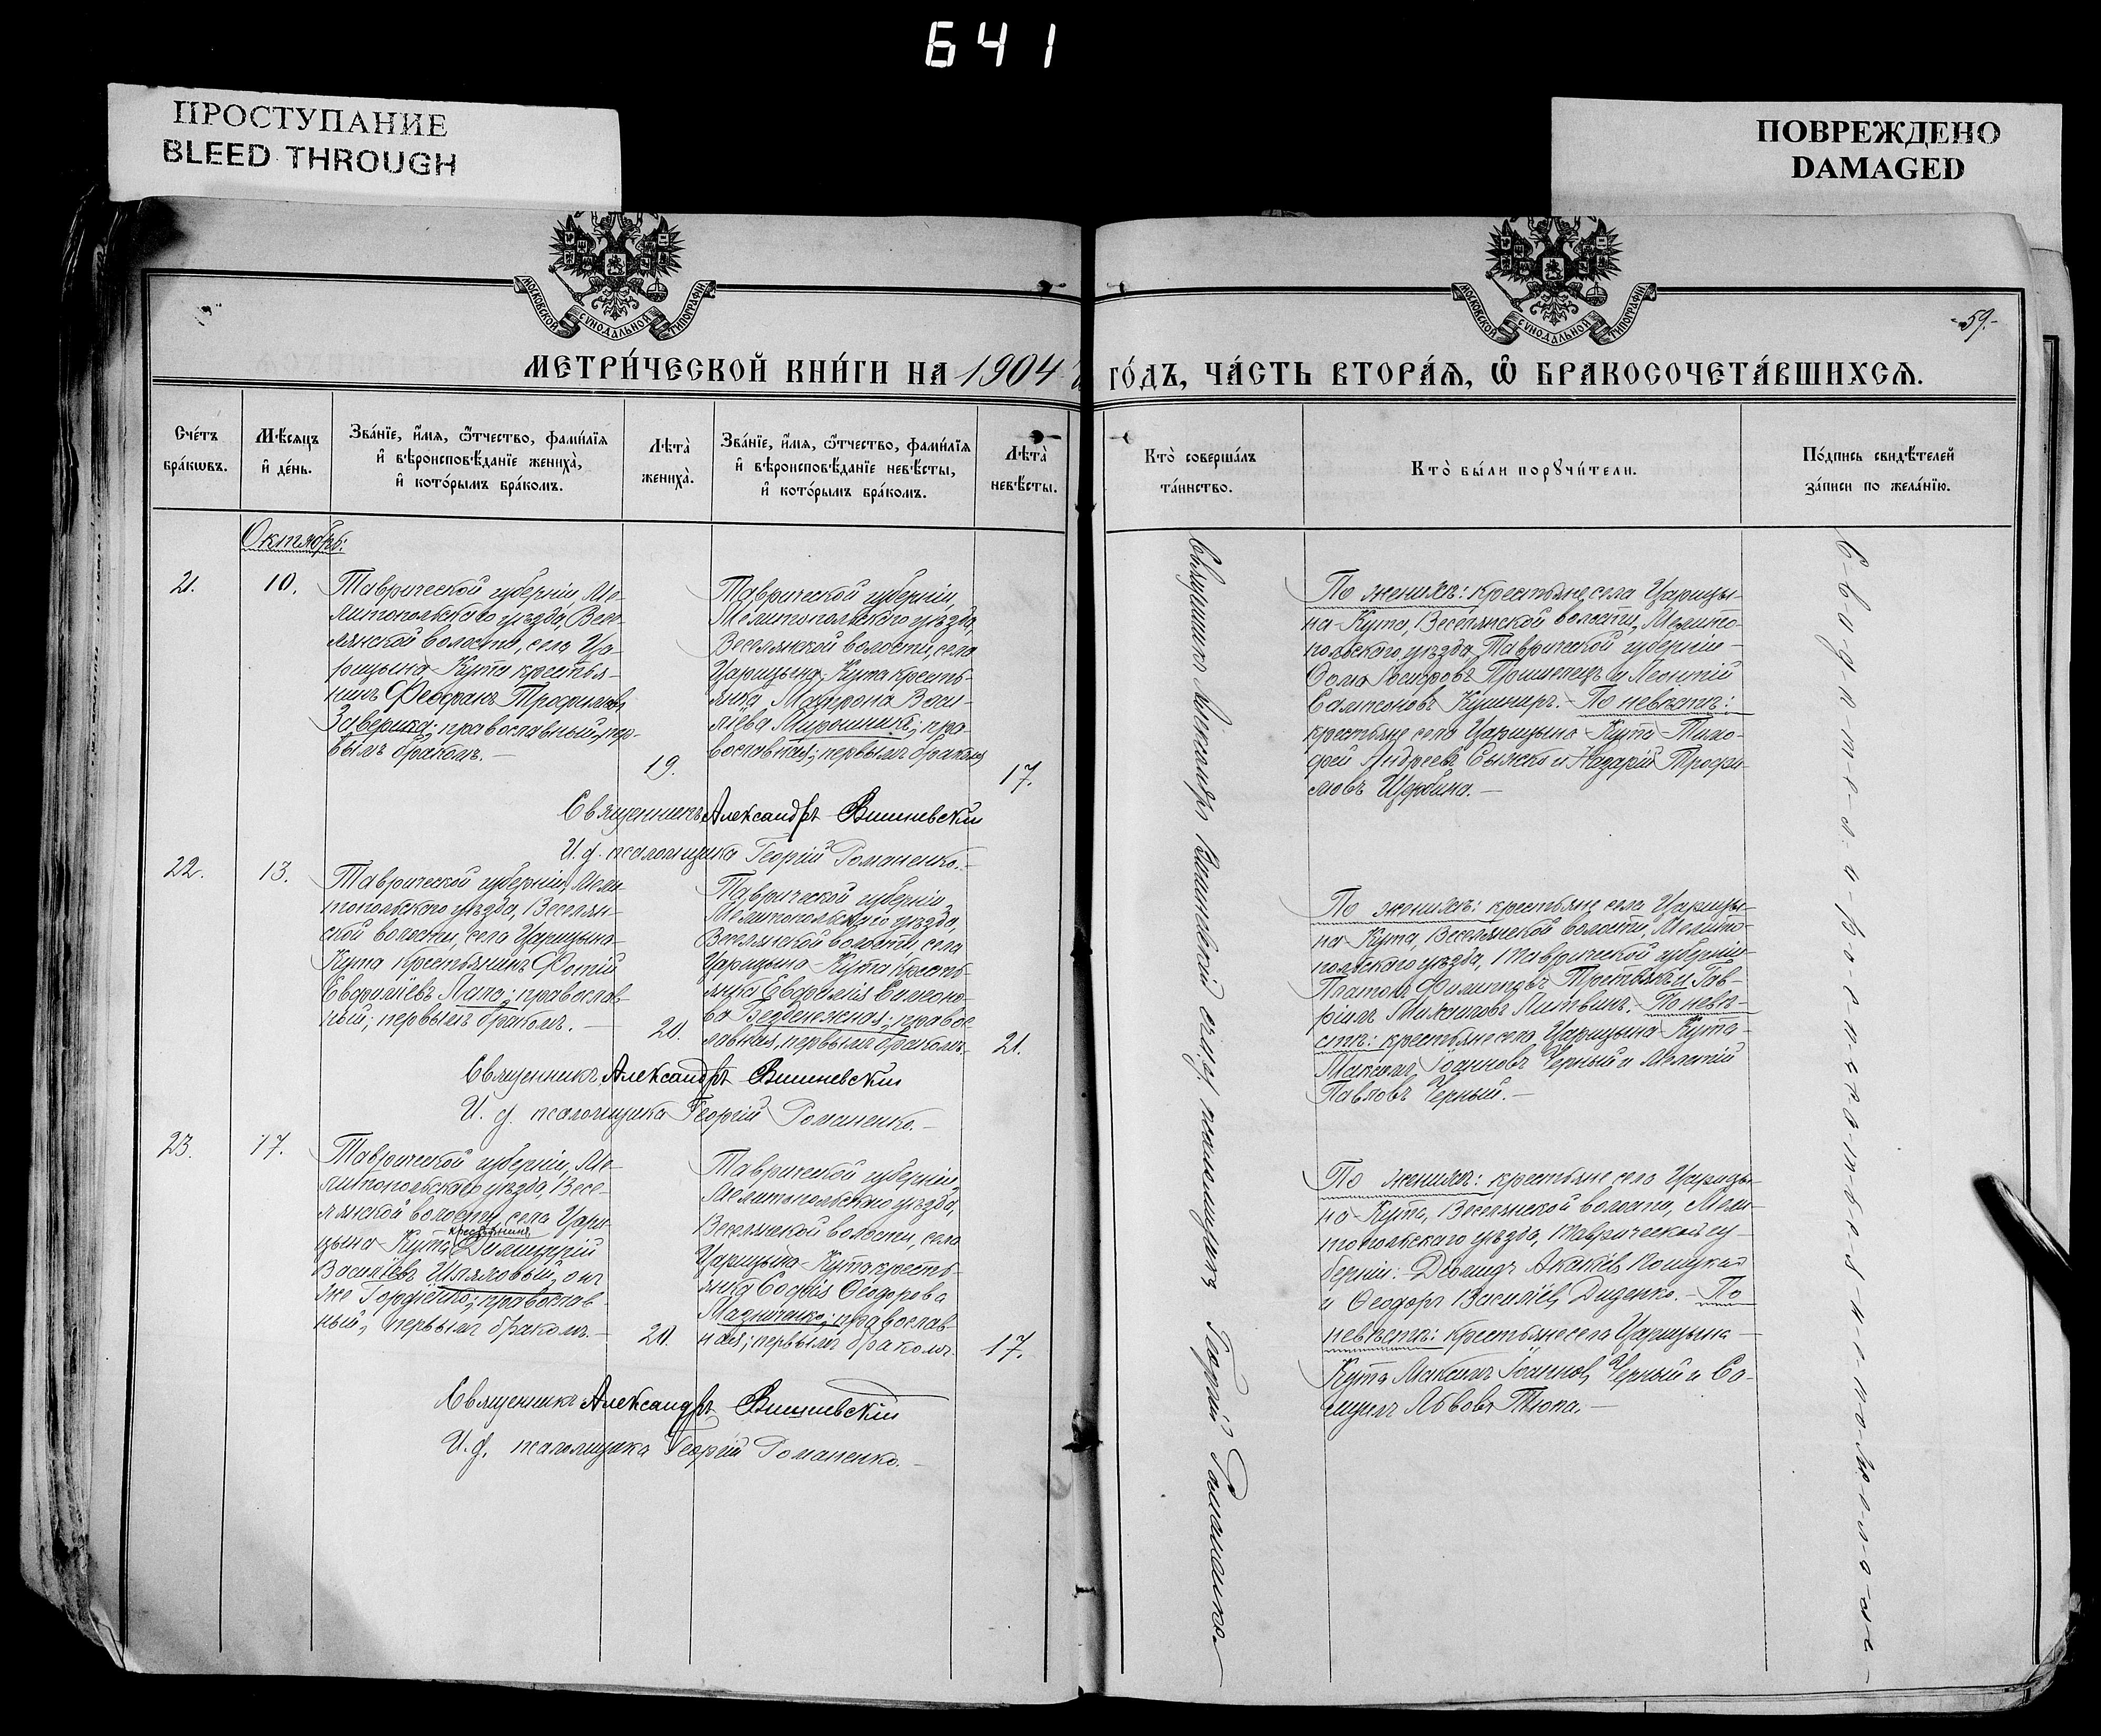 641
ПРОСТУПАНИЕ
BLEED THROUGH
ПОВРЕЖДЕНО
DAMAGED
МОСКОВСКОЙ СУНОДАЛЬНОЙ ТИПОГРАФІИ
МОСКОВСКОЙ СУНОДАЛЬНОЙ ТИПОГРАФІИ
-59.-
МЕТРИ́ЧЕСКОЙ КНИ́ГИ НА 1904 ГО́ДЪ, ЧА́СТЬ ВТОРА́Я, Ѡ БРАКОСОЧЕТА́ВШИХСЯ.
Сче́тъ
бра́кωвъ.
Мѣ́сяцъ
и҆ де́нь.
Зва́нїе, и҆́мя, ѻ҆́тчество, фами́лїя
и҆ вѣроисповѣ́данїе жениха̀,
и҆ кото́рымъ бра́комъ.
Лѣта̀
жениха̀.
Зва́нїе, и҆́мя, ѻ҆́тчество, фами́лїя
и҆ вѣроисповѣ́данїе невѣ́сты,
и҆ кото́рымъ бра́комъ.
Лѣта̀
невѣ́сты.
Кто̀ соверша́лъ
та́инство.
Кто̀ бы́ли порꙋчи́тели.
По́дпись свидѣ́телей
за́писи по жела́нїю.
Октябрь:
21.
10.
Таврической губерніи Ме-
литопольскаго уѣзда, Весе-
лянской волости, села Ца-
рицына-Кута крестья-
нинъ Феофанъ Трофимовъ
Заверика; православный, пер-
вымъ бракомъ.-
19.
Таврической губерніи,
Мелитопольскаго уѣзда,
Веселянской волости, села
Царицына-Кута кресть-
янка Матрона Васи-
ліева Мирошникъ; пра-
вославная; первымъ бракомъ
17.
По женихѣ: крестьяне села Царицы-
на-Кута, Веселянской волости, Мелито-
польскаго уѣзда, Таврической губерніи-
Ѳома Пришепецъ и Леонтій
Сампсоновъ Кушниръ.- По невѣстѣ:
крестьяне села Царицына-Кута-Тимо-
фей Андреевъ Сыжко и Назарій Трофи-
мовъ Щербина.-
Священникъ Александръ Вишневскій
И. д. псаломщика Георгій Романенко.-
22.
13.
Таврической губерніи, Мели-
топольскаго уѣзда, Веселян-
ской волости, села Царицына-
Кута крестьянинъ Фотій
Евфиміевъ Лапа; православ-
ный; первымъ бракомъ.-
20.
Таврической губерніи
Мелитопольскаго уѣзда,
Веселянской волости, села
Царицына-Кута кресть-
янка Евфимія Симоно-
ва Безденежная; правос-
лавная, первымъ бракомъ.
21.
По женихѣ: крестьяне села Царицы-
на-Кута, Веселянской волости, Мелито-
польскаго уѣзда, Таврической губерніи-
Платонъ Филипповъ Третьякъ и Гав-
ріилъ Литвинъ.- По невѣ-
стѣ: крестьяне села Царицына-Кута-
Максимъ Іоанновъ Черный и Мелетій
Павловъ Черный.-
Священникъ Александръ Вишневскій
И. д. псаломщика Георгій Романенко.-
23.
17.
Таврической губерніи, Ме-
литопольскаго уѣзда, Весе-
лянской волости, села Цари-
цына-Кута крестьянинъ Димитрій
Василіевъ Шпяловый, онъ
же Гордіенко; православ-
ный; первымъ бракомъ.-
20.
Таврической губерніи
Мелитопольскаго уѣзда,
Веселянской волости, села
Царицына-Кута кресть-
янка Софія Ѳеодорова
Мазниченко; православ-
ная; первымъ бракомъ.
17.
По женихѣ: крестьяне села Царицы-
на-Кута, Веселянской волости, Мели-
топольскаго уѣзда, Таврической гу-
берніи: Діомидъ Акакіевъ
и Ѳеодоръ Василіевъ Диденко.- По
невѣстѣ: крестьяне села Царицына-
Кута Максимъ Іоанновъ Черный и Са-
муилъ Львовъ Тюпа.-
Священникъ Александръ Вишневскій
И. д. псаломщика Георгій Романенко.-
Священникъ Александръ Вишневскій и и. д. псаломщикъ Георгій Романенко.